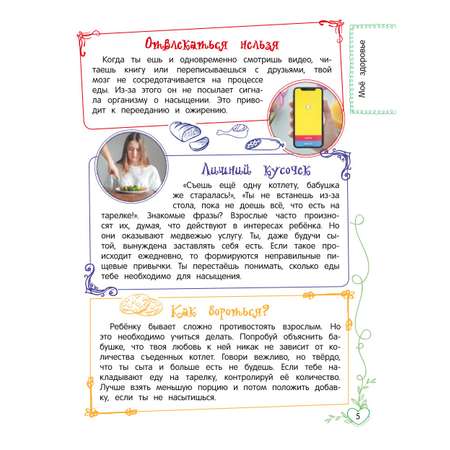 Отвлекаться нельзя
Когда ты ешь и одновременно смотришь видео, чи-
таешь книгу или переписываешься с друзьями, твой
мозг не сосредотачивается на процессе
еды. Из-за этого он не посылает сигна-
ла организму о насыщении. Это приво-
дит к перееданию и ожирению.
Моё здоровье
Лишний кусочек
«Съешь ещё одну котлету, бабушка
же старалась!», «Ты не встанешь из-за
стола, пока не доешь всё, что есть на
тарелке!». Знакомые фразы? Взрослые часто произно-
сят их, думая, что действуют в интересах ребёнка. Но
они оказывают медвежью услугу. Ты, даже будучи сы-
той, вынуждена заставлять себя есть. Если такое про-
исходит ежедневно, то формируются неправильные пи-
щевые привычки. Ты перестаёшь понимать, сколько еды
тебе необходимо для насыщения.
Как бороться?
Ребёнку бывает сложно противостоять взрослым. Но
это необходимо учиться делать. Попробуй объяснить ба-
бушке, что твоя любовь к ней никак не зависит от ко-
личества съеденных котлет. Говори вежливо, но твёрдо,
что ты сыта и больше есть не будешь. Если тебе на-
кладывают еду на тарелку, контролируй её количество.
Лучше взять меньшую порцию и потом положить добав-
ку, если ты не насытишься.
5